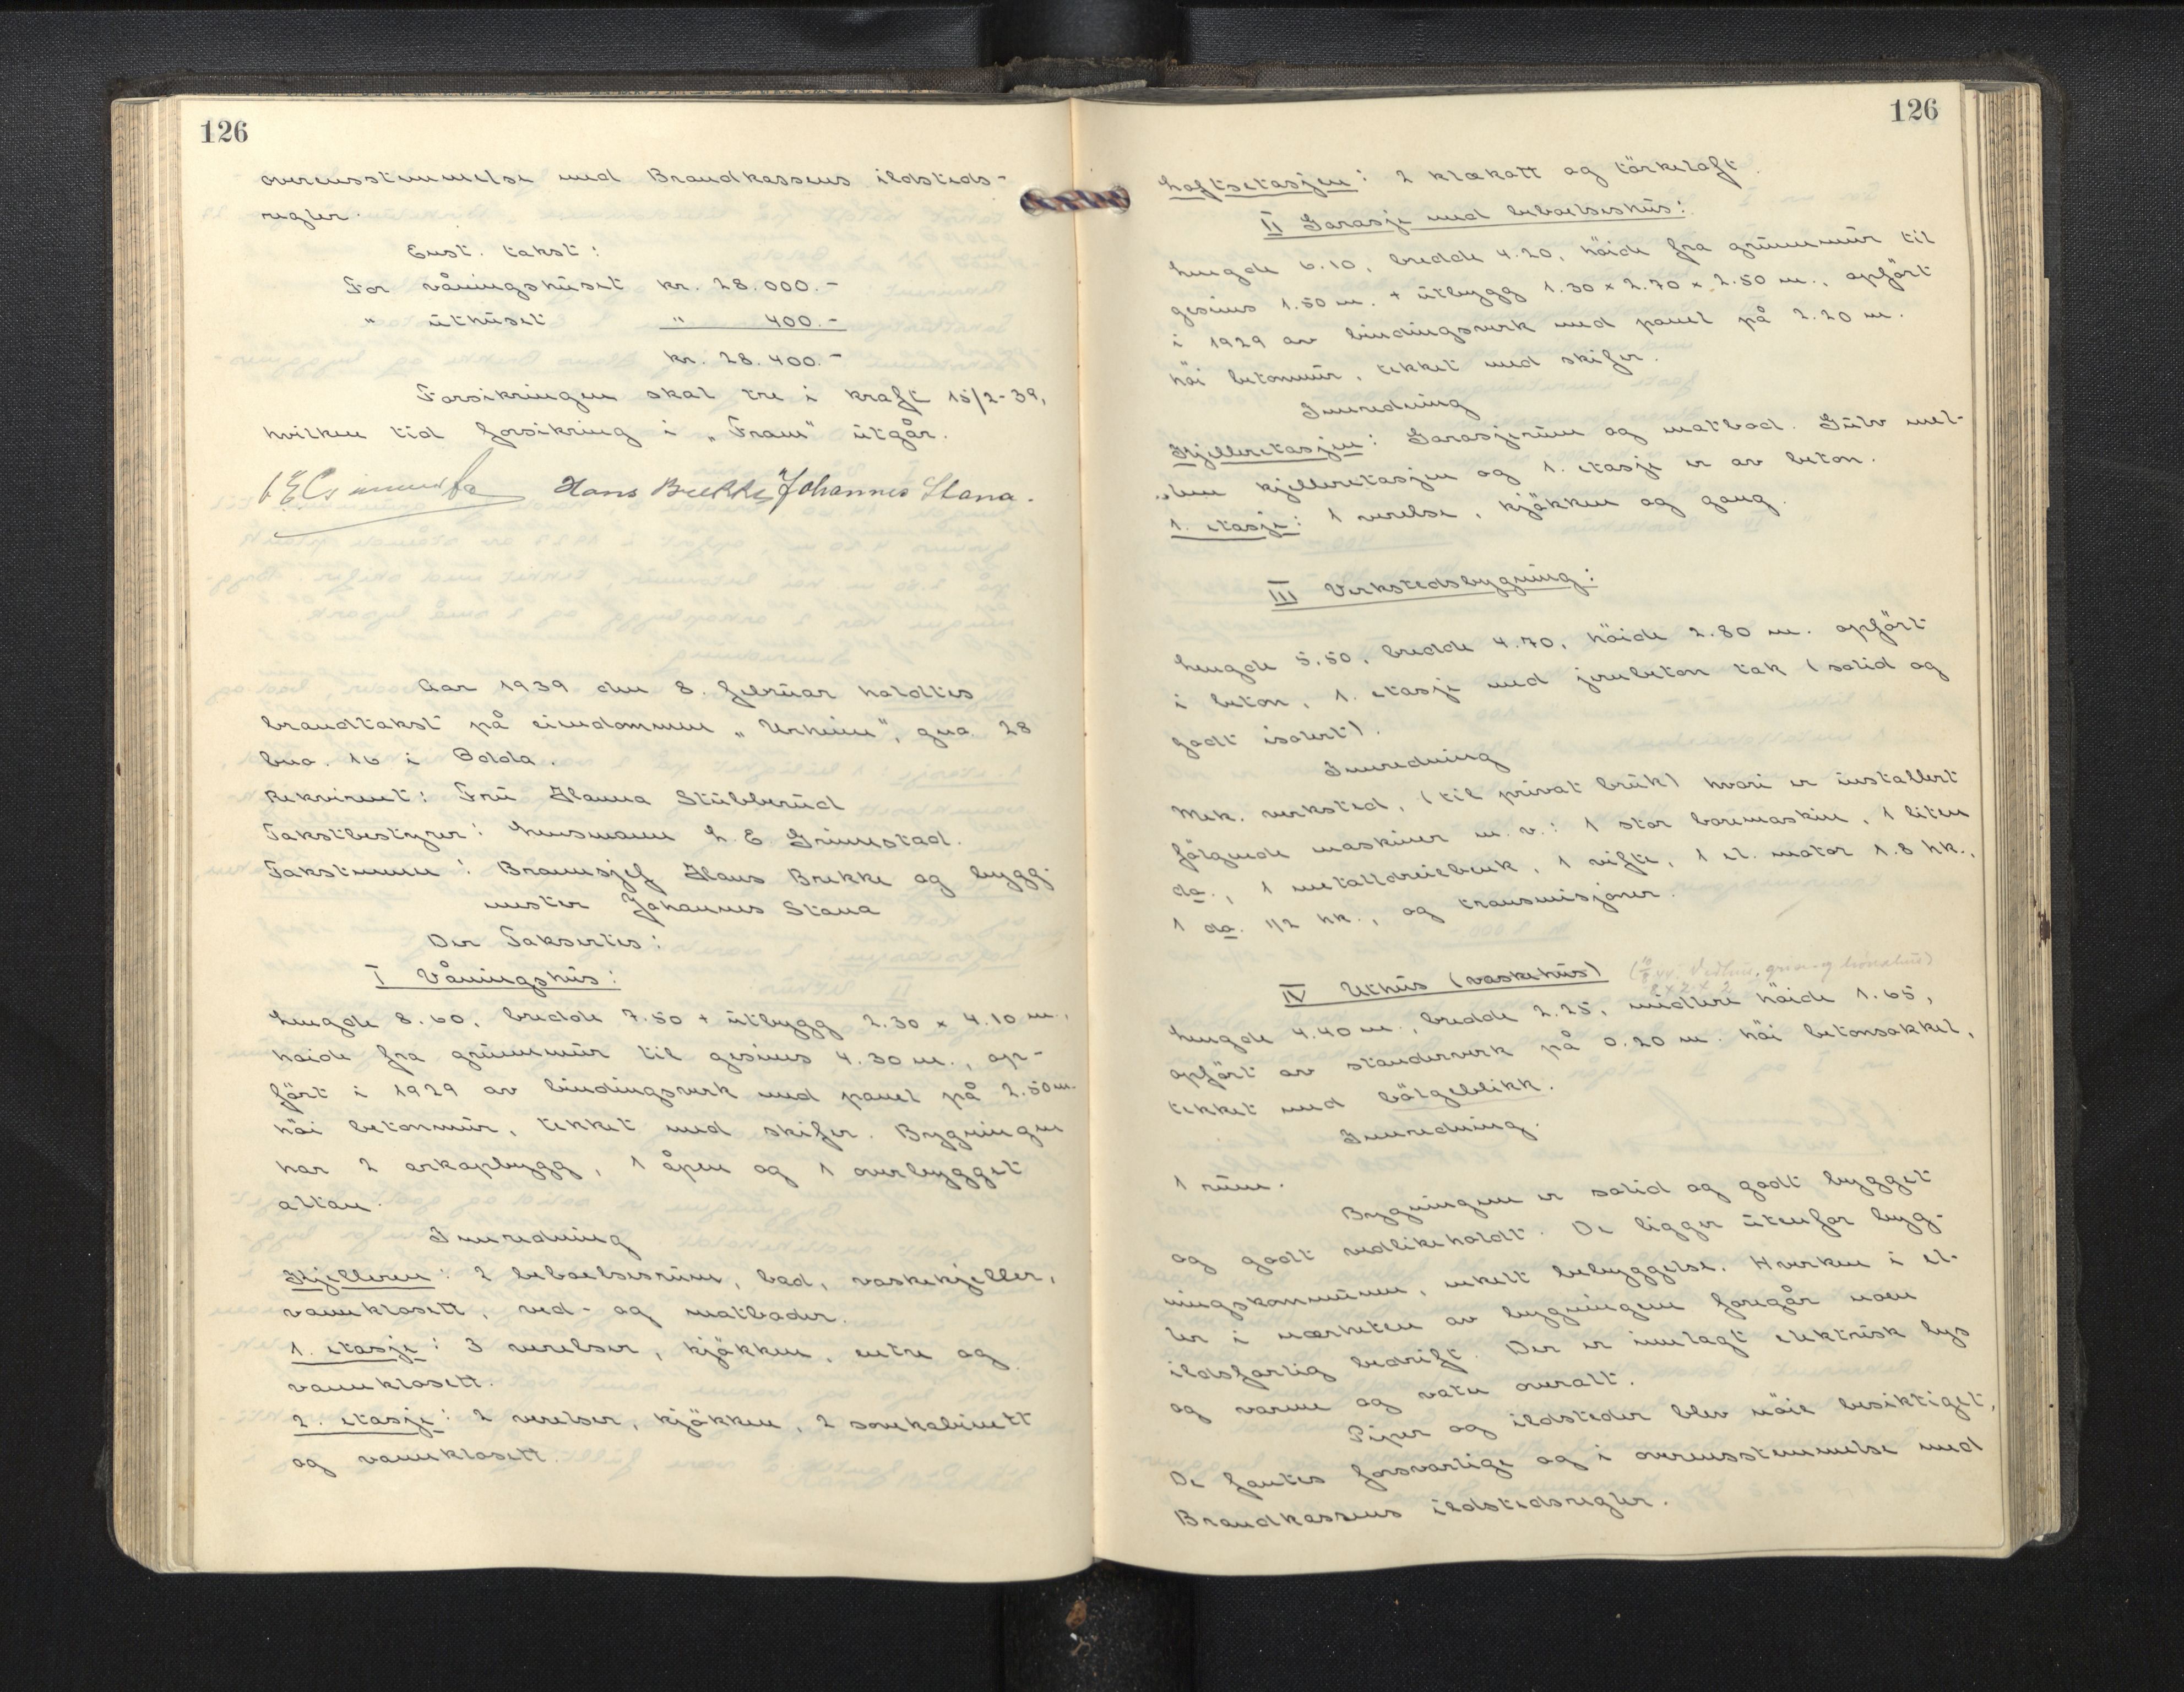 126
overensstemmelse med Brandkassens ildsteds-
regler.
Enst. takst:
For våningshuset kr. 28.000.-
" uthuset " 400.-
kr. 28.400.-
Forsikringen skal tre i kraft 15/2-39,
hvilken tid forsikring i "Fram" utgår.
Hans Brekke Johannes Stana.
Aar 1939 den 8. februar holdtes
brandtakst på eiendommen "Urheim", gno. 28
bno. 16 i Odda.
Rekvirent: Fru Hanna Stubberud
Takstbestyrer: Lensmann L. E. Grimestad.
Takstmenn: Brannsjef Hans Brekke og bygg-
mester Johannes Stana
Der Taksertes:
I Våningshus:
Lengde 8.60, bredde 7.50 + utbygg 2.30 x 4.10 m.,
høide fra grunnmur til gesims 4.30 m., op-
ført i 1929 av bindingsverk med panel på 2.50 m.
høi betonmur, tekket med skifer. Bygningen
har 2 arkopbygg, 1 åpen og 1 overbygget
altan.
Innredning
Kjelleren: 2 beboelsesrum, bad, vaskekjeller,
vannklosett, ved- og matboder.
1. etasje: 3 værelser, kjøkken, entre og
vannklosett.
2. etasje: 2 værelser, kjøkken, 2 sovekabinett
og vannklosett.
126
Loftsetasjen: 2 klækott og tørkeloft.
II Garasje med beboelseshus:
Lengde 6.10, bredde 4.20, høide fra grunnmur til
gesims 1.50 m. + utbygg 1.30 x 2.70 x 2.50 m., opført
i 1929 av bindingsverk med panel på 2.20 m.
høi betonmur, tekket med skifer.
Innredning
Kjelleretasjen: Garasjerum og matbod. Gulv mel-
lem kjelleretasjen og 1. etasje er av beton.
1. etasje: 1 værelse, kjøkken og gang.
III Verkstedsbygning:
Lengde 5.50, bredde 4.70, høide 2.80 m. opført
i beton, 1. etasje med jernbeton tak (solid og
godt isolert).
Innredning
Mek. verksted, (til privat bruk) hvori er installert
følgende maskiner m.v.: 1 stor boremaskin, 1 liten
do., 1 metalldreiebenk, 1 vifte, 1 el. motor 1.8 hk.,
1 do. 1/2 hk., og transmisjoner.
IV Uthus (vaskehus)
8 x 2 x 2
Lengde 4.40 m., bredde 2.25, midlere høide 1.65,
opført av stenderverk på 0.20 m. høi betonsokkel,
tekket med bølgeblikk.
Innredning.
1 rum.
Bygningene er solid og godt bygget
og godt vedlikeholdt. De ligger utenfor byg-
ningskommunen, enkelt bebyggelse. Hverken i el-
ler i nærheten av bygningene foregår noen
ildsfarlig bedrift. Der er innlagt elektrisk lys
og varme og vatn overalt.
Piper og ildsteder blev nøie besiktiget.
De fantes forsvarlige og i overensstemmelse med
Brandkassens ildstedsregler.